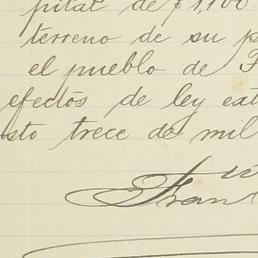 pital de $1,100.
terreno de su p
el pueblo de F
efectos de ley ext
sto trece de mil
Fran